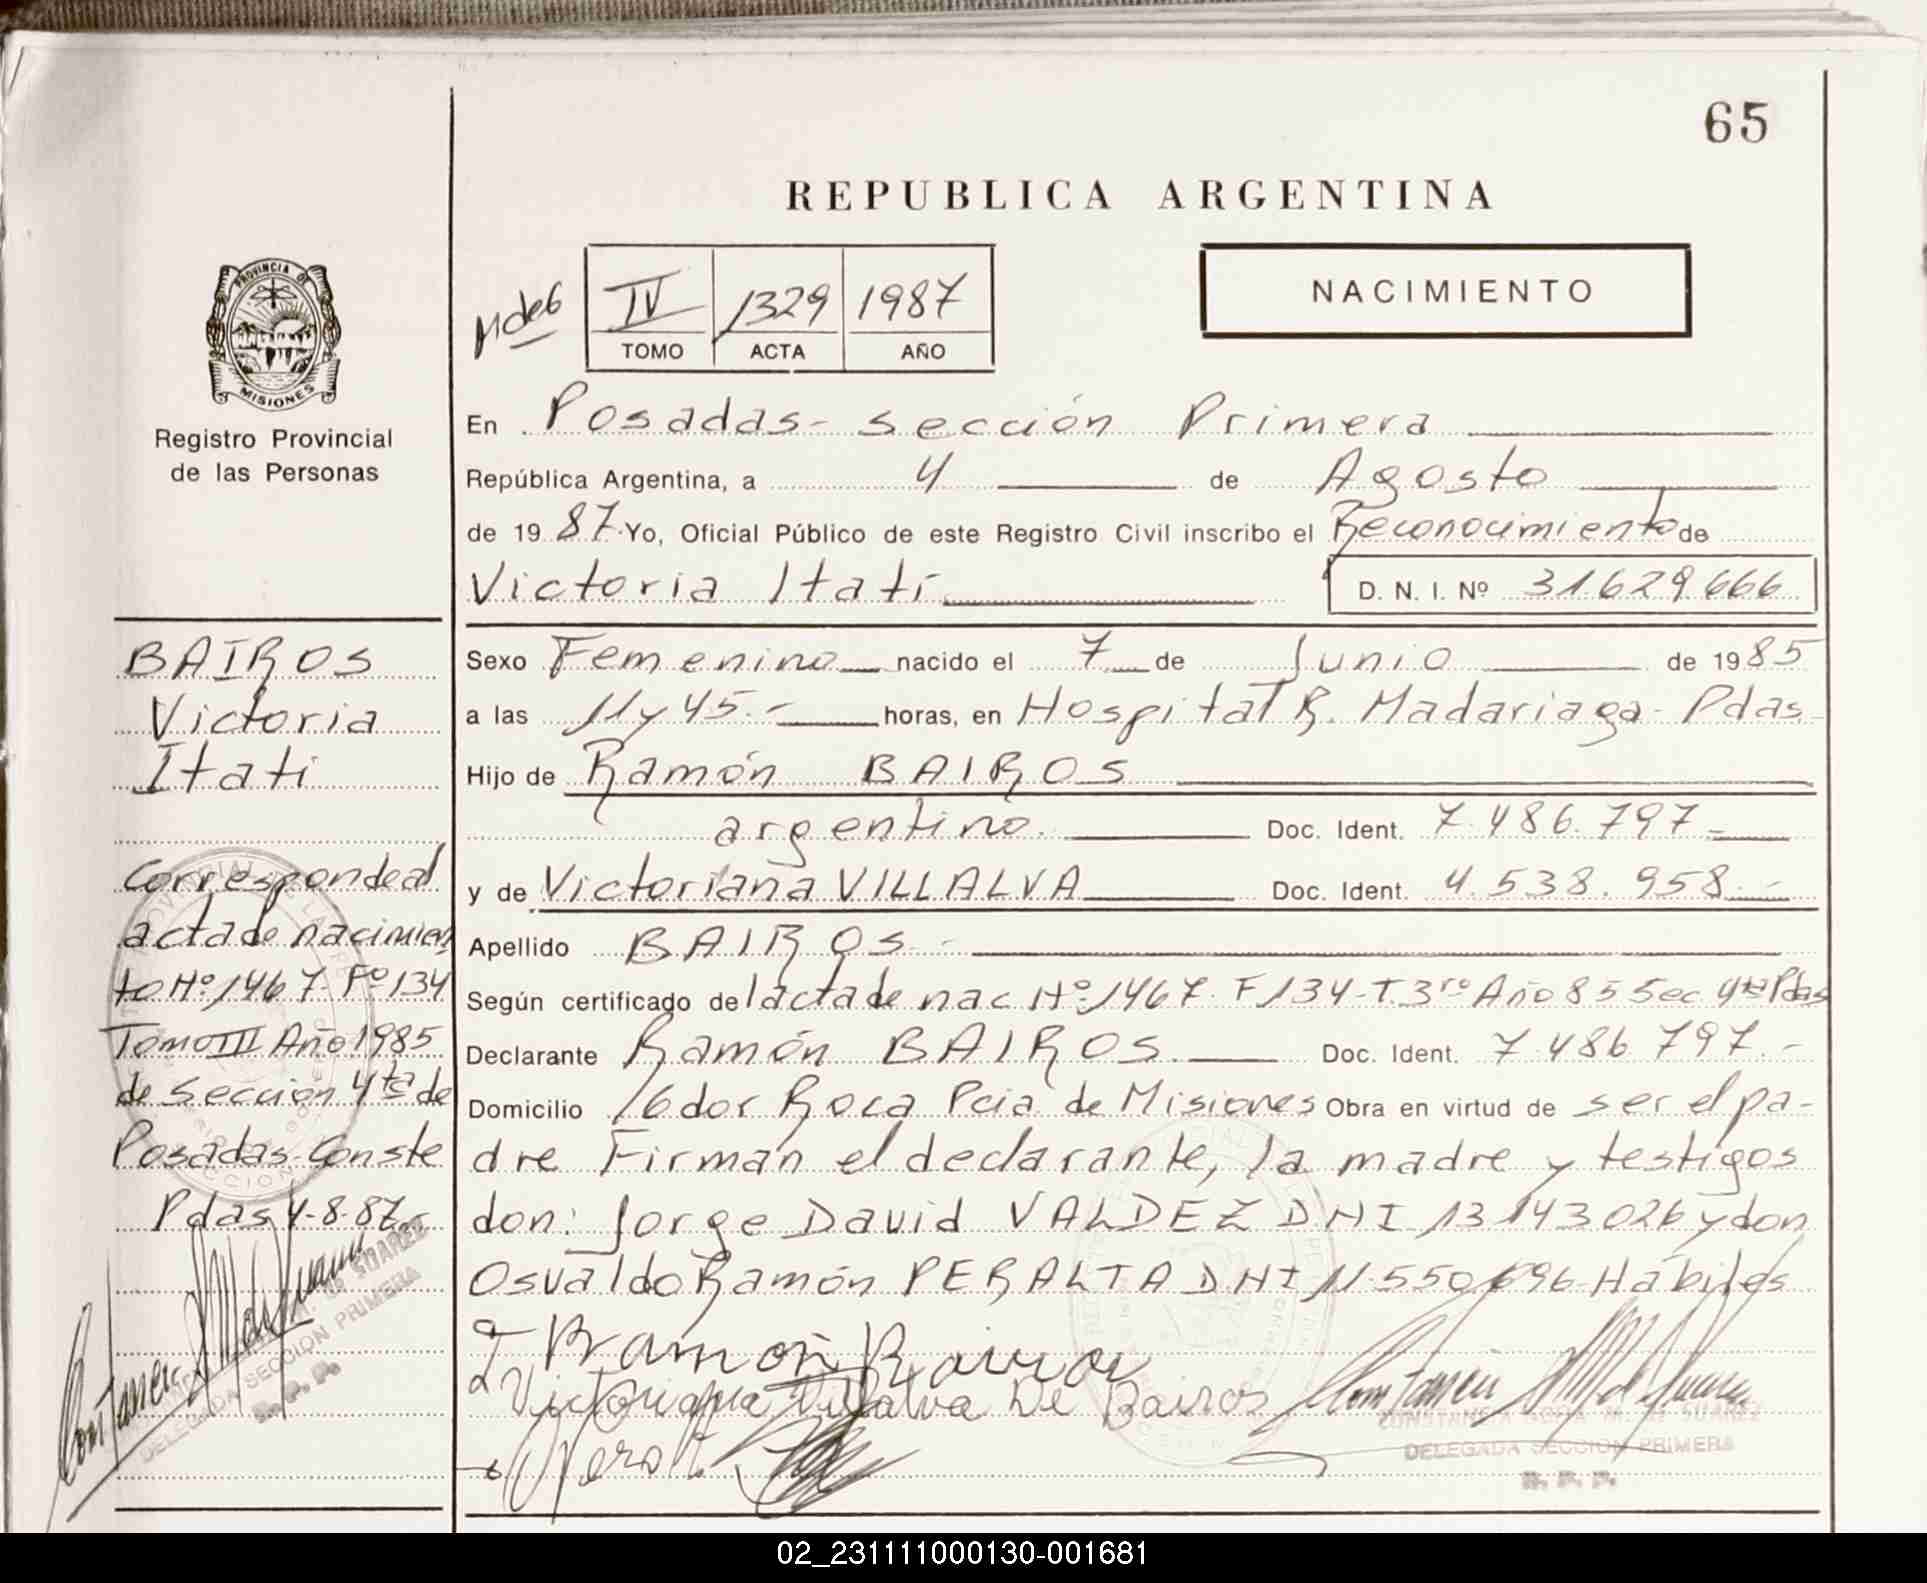 65
REPUBLICA ARGENTINA
PROVINCIA DE
MISIONES
Registro Provincial
de las Personas
IV 1329 1987
TOMO ACTA AÑO
NACIMIENTO
En Posadas - sección Primera
República Argentina, a 4 de Agosto
de 19 87. Yo, Oficial Público de este Registro Civil inscribo el Reconocimiento de
Victoria Itatí D. N. I. Nº 31.629.666
Sexo Femenino nacido el 7 de Junio de 19 85
a las 11 y 45.- horas, en Hospital R. Madariaga - Pdas -
Hijo de Ramón BAIROS
argentino. Doc. Ident. 7.486.797 -
y de Victoriana VILLALVA Doc. Ident. 4.538.958.-
Apellido BAIROS.-
Según certificado del acta de nac. Nº 1467. F 134 - T. 3ro Año 85 Sec 4ta Pdas
Declarante Ramón BAIROS. Doc. Ident. 7.486.797.-
Domicilio Gdor Roca Pcia de Misiones Obra en virtud de ser el pa-
dre Firman el declarante, la madre y testigos
don: Jorge David VALDEZ DNI 13.143.026 y don
Osvaldo Ramón PERALTA DNI 11.550.696 - Hábiles
Ramon Bairos
Victoriana Villalva De Bairos
DELEGADA SECCION PRIMERA
R. P. P.
BAIROS
Victoria
Itati
Corresponde al
acta de nacimien
to Nº 1467. Fº 134
Tomo III Año 1985
de Sección 4ta de
Posadas. Conste
Pdas, 4-8-87.-
DELEGADA SECCION PRIMERA
R. P. P.
02_231111000130-001681